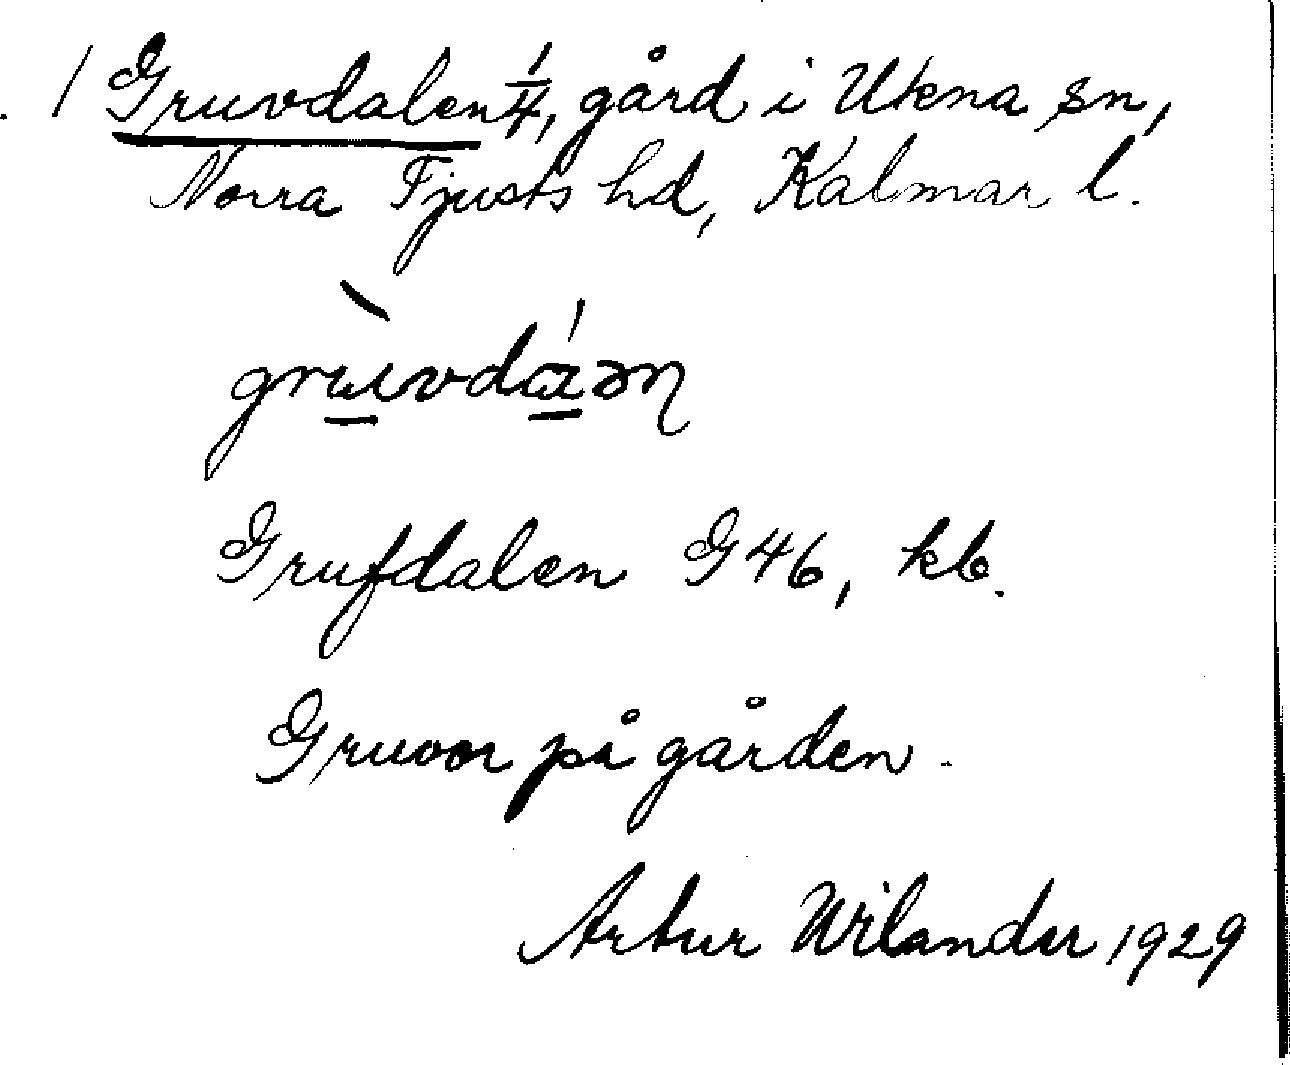 1 Gruvdalen 1/4, gård i Ukna sn,
Norra Tjusts hd, Kalmar l.
Grufdalen G46, kb.
Gruvor på gården.
Artur Wilander 1929